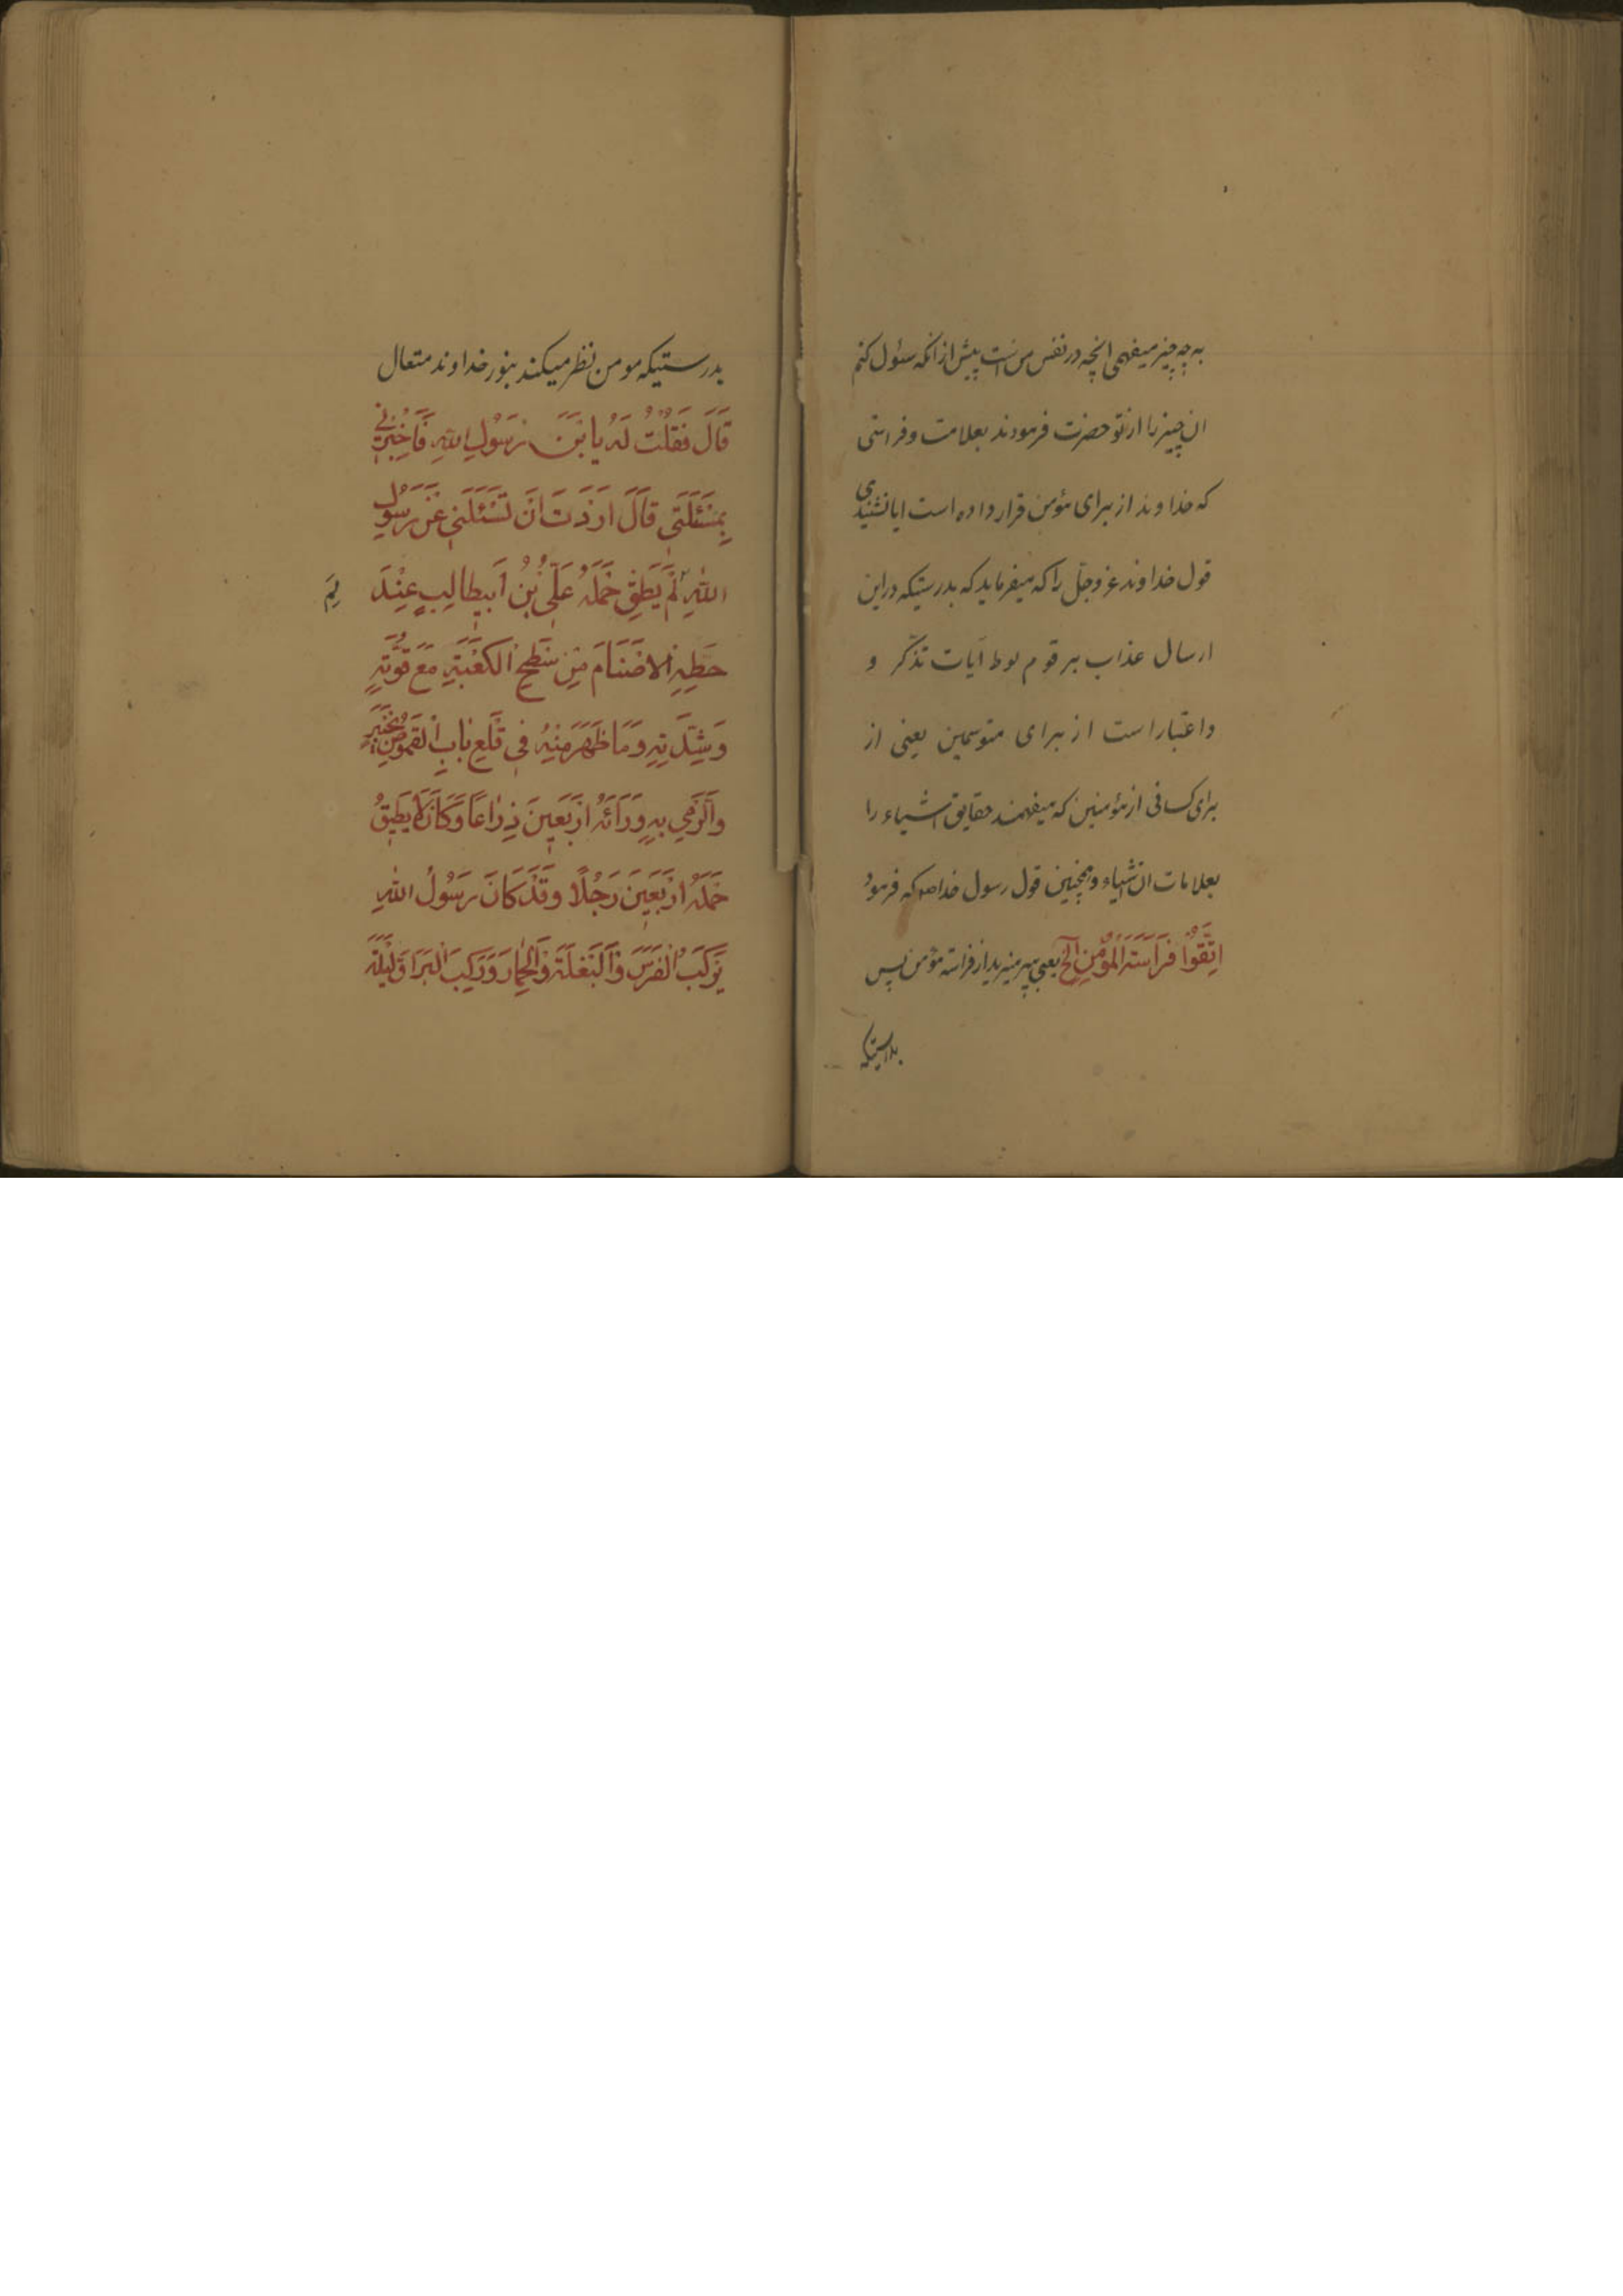 به چه چیز میفهمی انچه در نفس من است پیش از انکه سئول کنم
ان چیز را از تو حضرت فرمودند بعلامت و فراستی
که خداوند از برای مؤمن قرار داده است ایا نشنیدی
قول خداوند عز وجل را که میفرماید که بدرستیکه در این
ارسال عذاب بر قوم لوط آیات تذکر و
و اعتبار است از برای متوسمین یعنی از
برای کسانی از مؤمنین که میفهمند حقایق اشیاء را
بعلامات ان اشیاء و همچنین قول رسول خدا که فرمود
اِتَّقُوا فَرَاسَتَ الْمُؤْمِنِ الخ یعنی بپرهیزید از فراسته مؤمن پس
بدرستیکه
بدرستیکه مومن نظر میکند بنور خداوند متعال
قَالَ فَقُلْتُ لَهُ يَا بْنَ رَسُولِ اللهِ فَاَخْبِرْنِي
بِمَسْئَلَتِي قَالَ اَرَدْتَ اَنْ تَسْئَلَنِي عَنْ رَسُولِ
اللهِ لِمَ لَمْ يَطِقْ حَمْلَهُ عَلِيُّ بْنُ اَبِيطَالِبٍ عِنْدَ
حَطِّهِ الاَصْنَامَ مِنْ سَطْحِ الْكَعْبَةِ مَعَ قُوَّتِهِ
وَشِدَّتِهِ وَمَا ظَهَرَ مِنْهُ فِي قَلْعِ بَابِ الْقَمُوصِ بِخَيْبَرَ
وَالرَّمْيِ بِهِ وَرَائَهُ اَرْبَعِينَ ذِرَاعًا وَكَانَ لَا يُطِيقُ
حَمْلَهُ اَرْبَعِينَ رَجُلًا وَقَدْ كَانَ رَسُولُ اللهِ
يَرْكَبُ الْفَرَسَ وَالْبَغْلَةَ وَالْحِمَارَ وَرَكِبَ الْبُرَاقَ لَيْلَةَ